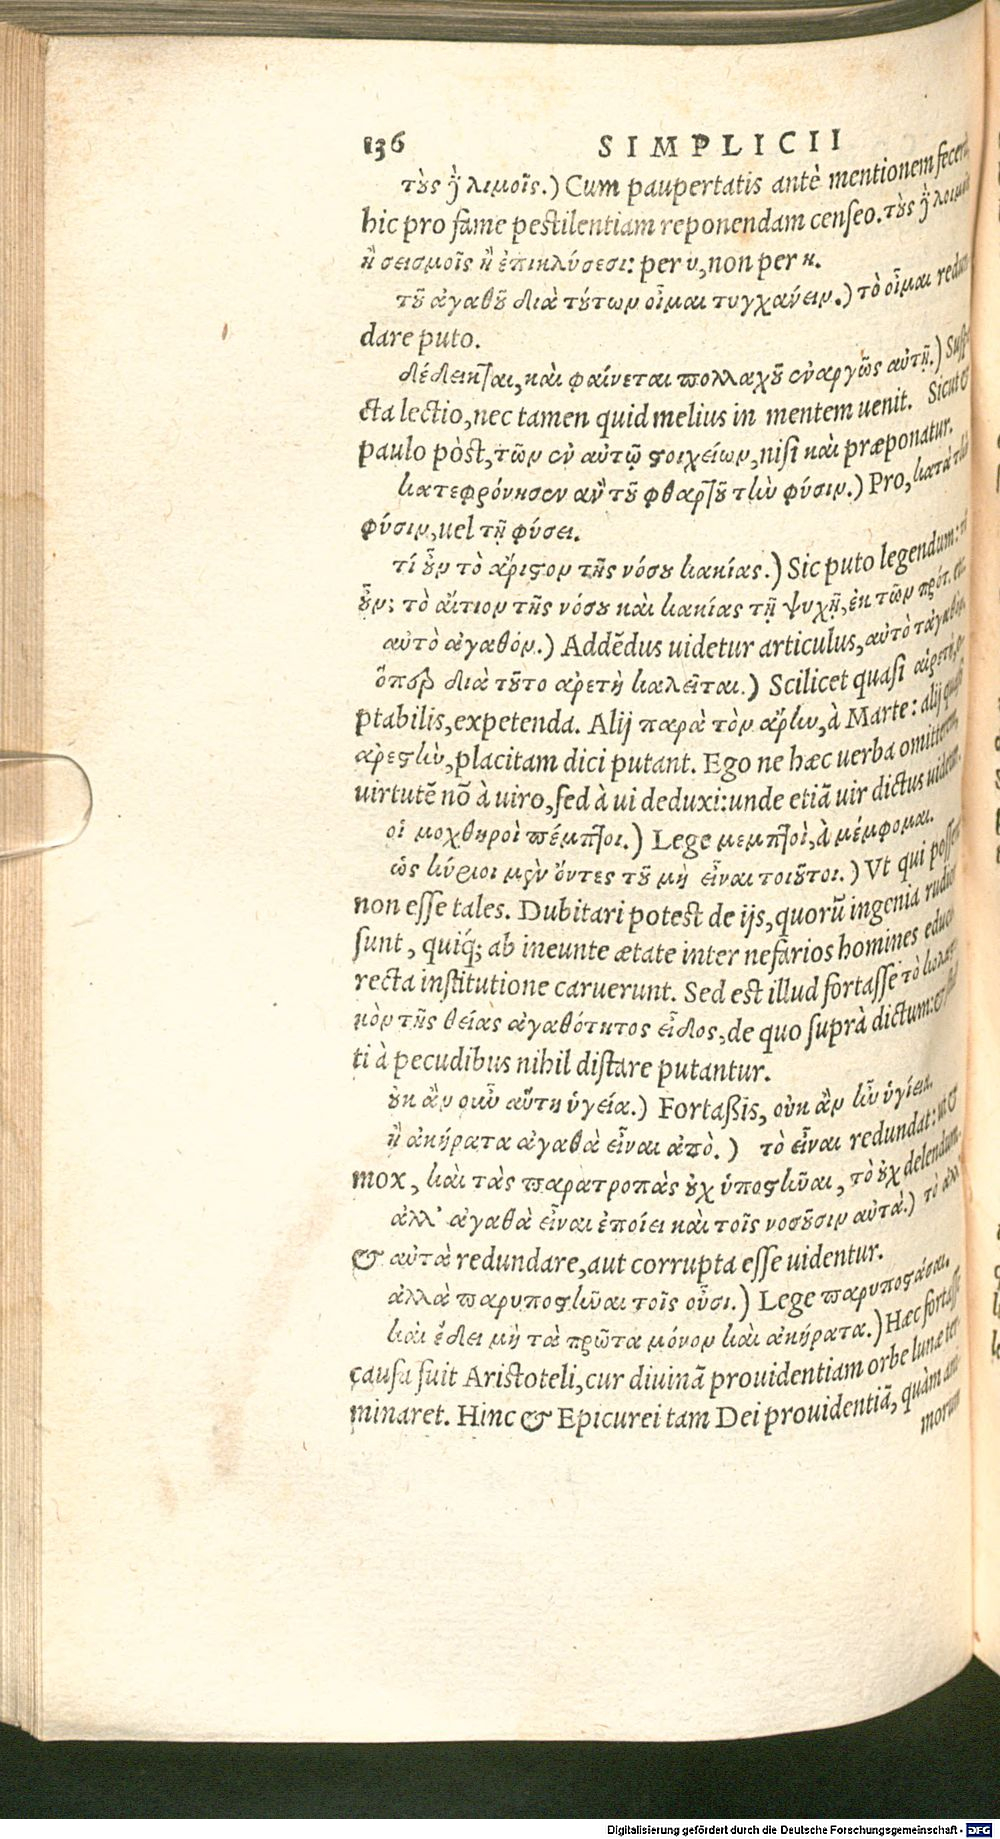 136 SIMPLICII
τοὺς ἢ λιμοῖς.) Cum paupertatis antè mentionem
hic pro fame pestilentiam reponendam censeo. τοὺς ἢ
ἢ σεισμοῖς ἢ ἐπικλύσεσι: per υ, non per κ.
τοῦ ἀγαθοῦ διὰ τούτων οἶμαι τυγχάνειν.) τὸ οἶμαι redun
dare puto.
δέδεικται, καὶ φαίνεται πολλαχοῦ ἐναργῶς αὐτῇ.) Suspe
cta lectio, nec tamen quid melius in mentem uenit. Sicut &
paulo pòst, τῶν ἐν αὐτῷ στοιχείων, nisi καὶ præponatur.
κατεφρόνησεν ἂν τοῦ φθαρτοῦ τὴν φύσιν.) Pro, κατὰ τὴν
φύσιν, uel τῇ φύσει.
τί οὖν τὸ ἄριστον τῆς νόσου κακίας.) Sic puto legendum: τί
οὖν; τὸ αἴτιον τῆς νόσου καὶ κακίας τῇ ψυχῇ, ἐκ τῶν πρότ.
αὐτὸ ἀγαθόν.) Addēdus uidetur articulus, αὐτὸ τἀγαθόν.
ὅπερ διὰ τοῦτο ἀρετὴ καλεῖται.) Scilicet quasi αἱρετὴ, o
ptabilis, expetenda. Alij παρὰ τὸν ἄρην, à Marte: alij quasi
ἀρεστὴν, placitam dici putant. Ego ne hæc uerba omitterem,
uirtutē nō à uiro, sed à ui deduxi: unde etiā uir dictus uidetur.
οἱ μοχθηροὶ πέμπτοι.) Lege μεμπτοὶ, à μέμφομαι.
ὡς κύριοι μὲν ὄντες τοῦ μὴ εἶναι τοιοῦτοι.) Vt qui possent
non esse tales. Dubitari potest de ijs, quorū ingenia rudia
sunt, quiq́; ab ineunte ætate inter nefarios homines educati
recta institutione caruerunt. Sed est illud fortasse τὸ κολαστι
κὸν τῆς θείας ἀγαθότητος εἶδος, de quo suprà dictum: &
ti à pecudibus nihil distare putantur.
οὐκ ἂν οὖν αὕτη ὑγεία.) Fortaßis, οὐκ ἂν ἦν ὑγίεια.
ἢ ἀκήρατα ἀγαθὰ εἶναι ἀπὸ.) τὸ εἶναι redundat: ut &
mox, καὶ τὰς παρατροπὰς οὐχ ὑποστῆναι, τὸ οὐχ delendum.
ἀλλ' ἀγαθὰ εἶναι ἐποίει καὶ τοῖς νοσοῦσιν αὐτὰ.) τὸ ἀλλ'
& αὐτὰ redundare, aut corrupta esse uidentur.
ἀλλὰ παρυποστῆναι τοῖς οὖσι.) Lege παρυποστᾶσαι.
καὶ ἔδει μὴ τὰ πρῶτα μόνον καὶ ἀκήρατα.) Hæc fortasse
causa fuit Aristoteli, cur diuinā prouidentiam orbe lunæ ter
minaret. Hinc & Epicurei tam Dei prouidentiā, quàm ani
morum
Digitalisierung gefördert durch die Deutsche Forschungsgemeinschaft - DFG